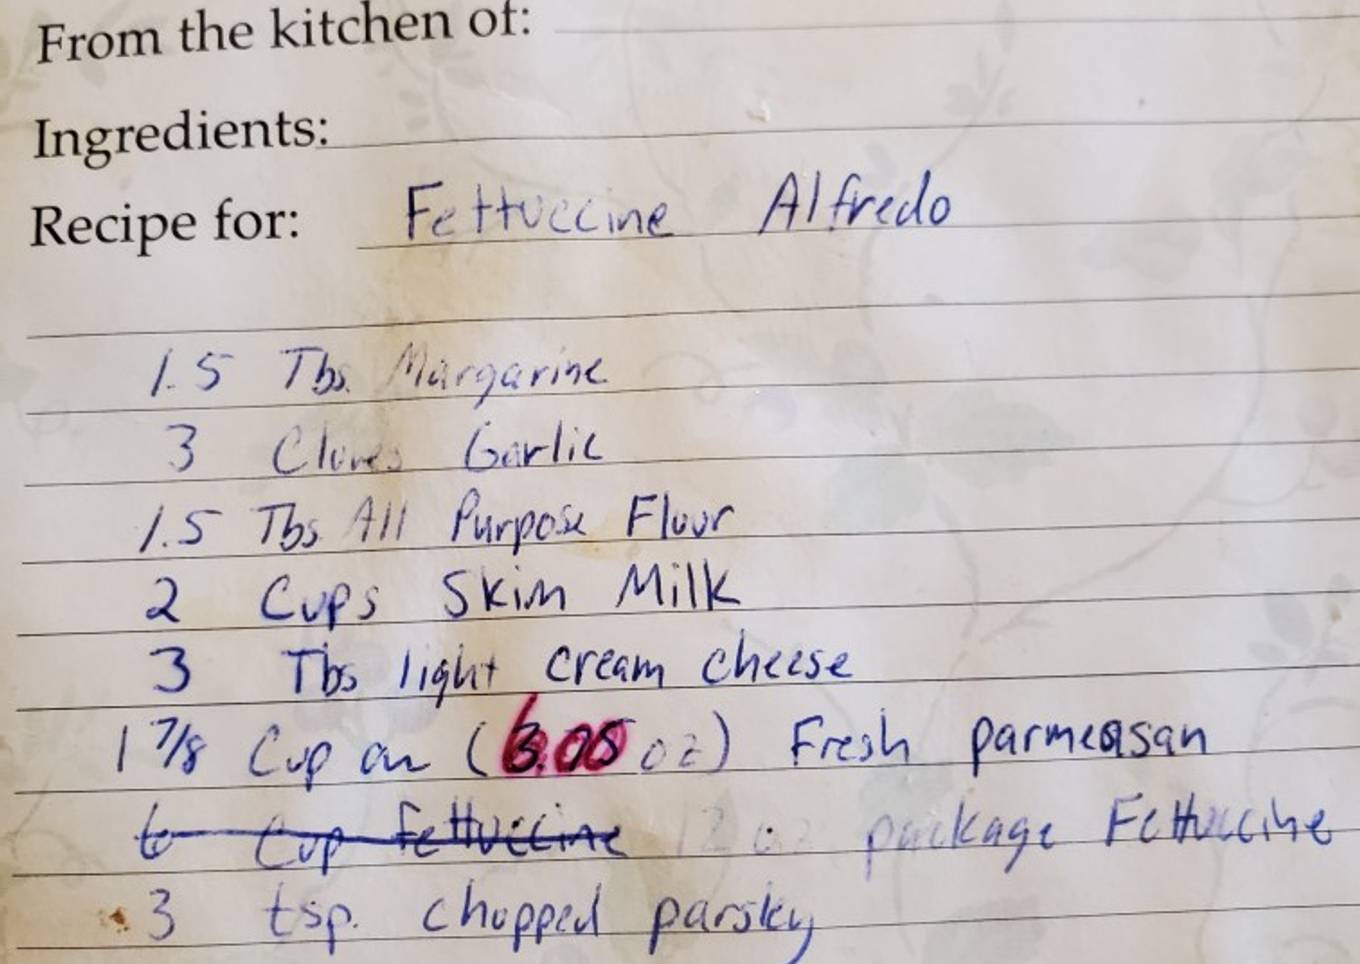 From the kitchen of:
Ingredients:
Recipe for: Fettuccine Alfredo
1.5 Tbs. Margarine
3 Cloves Garlic
1.5 Tbs All Purpose Flour
2 Cups Skim Milk
3 Tbs light cream cheese
1 7/8 Cup or ( oz) Fresh parmeasan
6 Cup Fettuccine 12 oz package Fettuccine
3 tsp. chopped parsley